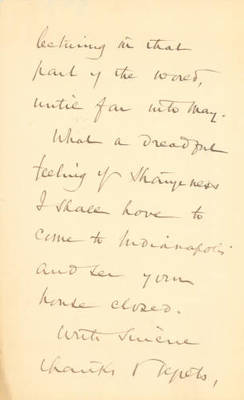 lecturing in that
part of the world,
until far into May.
What a dreadful
feeling of strangeness
I shall have to
come to Indianapolis
and see your
house closed.
With sincere
thanks & regrets,